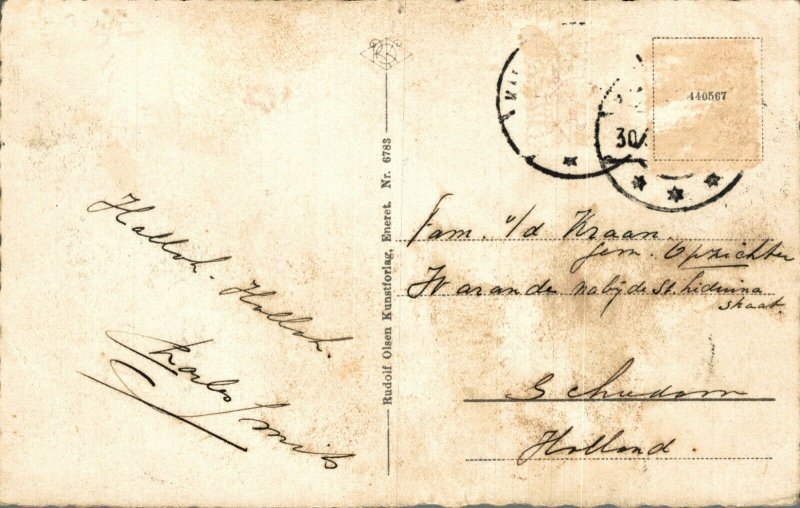 Halloh. Holloh.
Charles Smits
Rudolf Olsen Kunstforlag, Eneret. Nr. 6783
30
440567
Fam. v/d Kraan.
Gem. Opzichter
Warande nabij de St. Liduina
straat.
Schiedam
Holland.